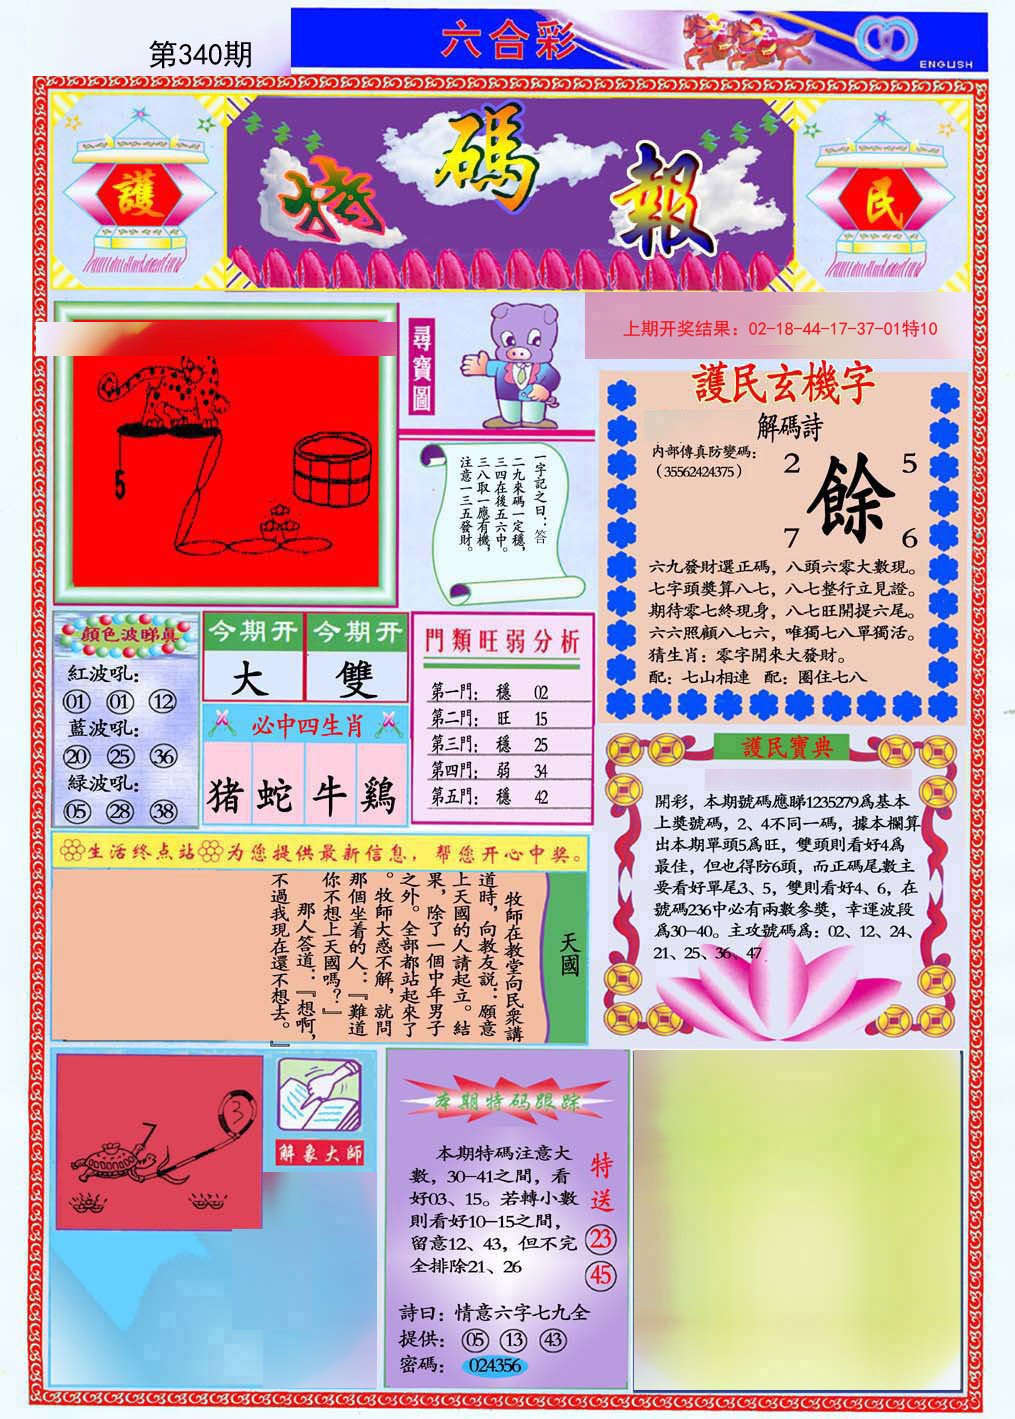 第340期
六合彩
ENGLISH
護
特碼報
民
尋寶圖
上期开奖结果：02-18-44-17-37-01特10
5
一字記之曰：答
二九來碼一定穩，
三四在後五六中。
三八取一應有機，
注意一三五發財。
護民玄機字
解碼詩
内部傳真防變碼：
（35562424375）
2
5
餘
7
6
六九發財選正碼，八頭六零大數現。
七字頭獎算八七，八七整行立見證。
期待零七終現身，八七旺開提六尾。
六六照顧八七六，唯獨七八單獨活。
猜生肖：零字開來大發財。
配：七山相連 配：圈住七八
顏色波睇真
紅波吼：
01 01 12
藍波吼：
20 25 36
綠波吼：
05 28 38
今期开
今期开
大
雙
必中四生肖
猪
蛇
牛
鷄
門類旺弱分析
第一門： 穩 02
第二門： 旺 15
第三門： 穩 25
第四門： 弱 34
第五門： 穩 42
護民寶典
開彩，本期號碼應睇1235279爲基本
上獎號碼，2、4不同一碼，據本欄算
出本期單頭5爲旺，雙頭則看好4爲
最佳，但也得防6頭，而正碼尾數主
要看好單尾3、5，雙則看好4、6，在
號碼236中必有兩數參獎，幸運波段
爲30—40。主攻號碼爲：02、12、24、
21、25、36、47
生活终点站 为您提供最新信息，帮您开心中奖。
天國
牧師在教堂向民衆講
道時，向教友説：願意
上天國的人請起立。結
果，除了一個中年男子
之外。全部都站起來了
。牧師大惑不解，就問
那個坐着的人：『難道
你不想上天國嗎？』
那人答道：『想啊，
不過我現在還不想去。』
7
3
解象大師
本期特码跟踪
本期特碼注意大
數，30—41之間，看
好03、15。若轉小數
則看好10—15之間，
留意12、43，但不完
全排除21、26
特送
23
45
詩曰：情意六字七九全
提供：05 13 43
密碼：024356